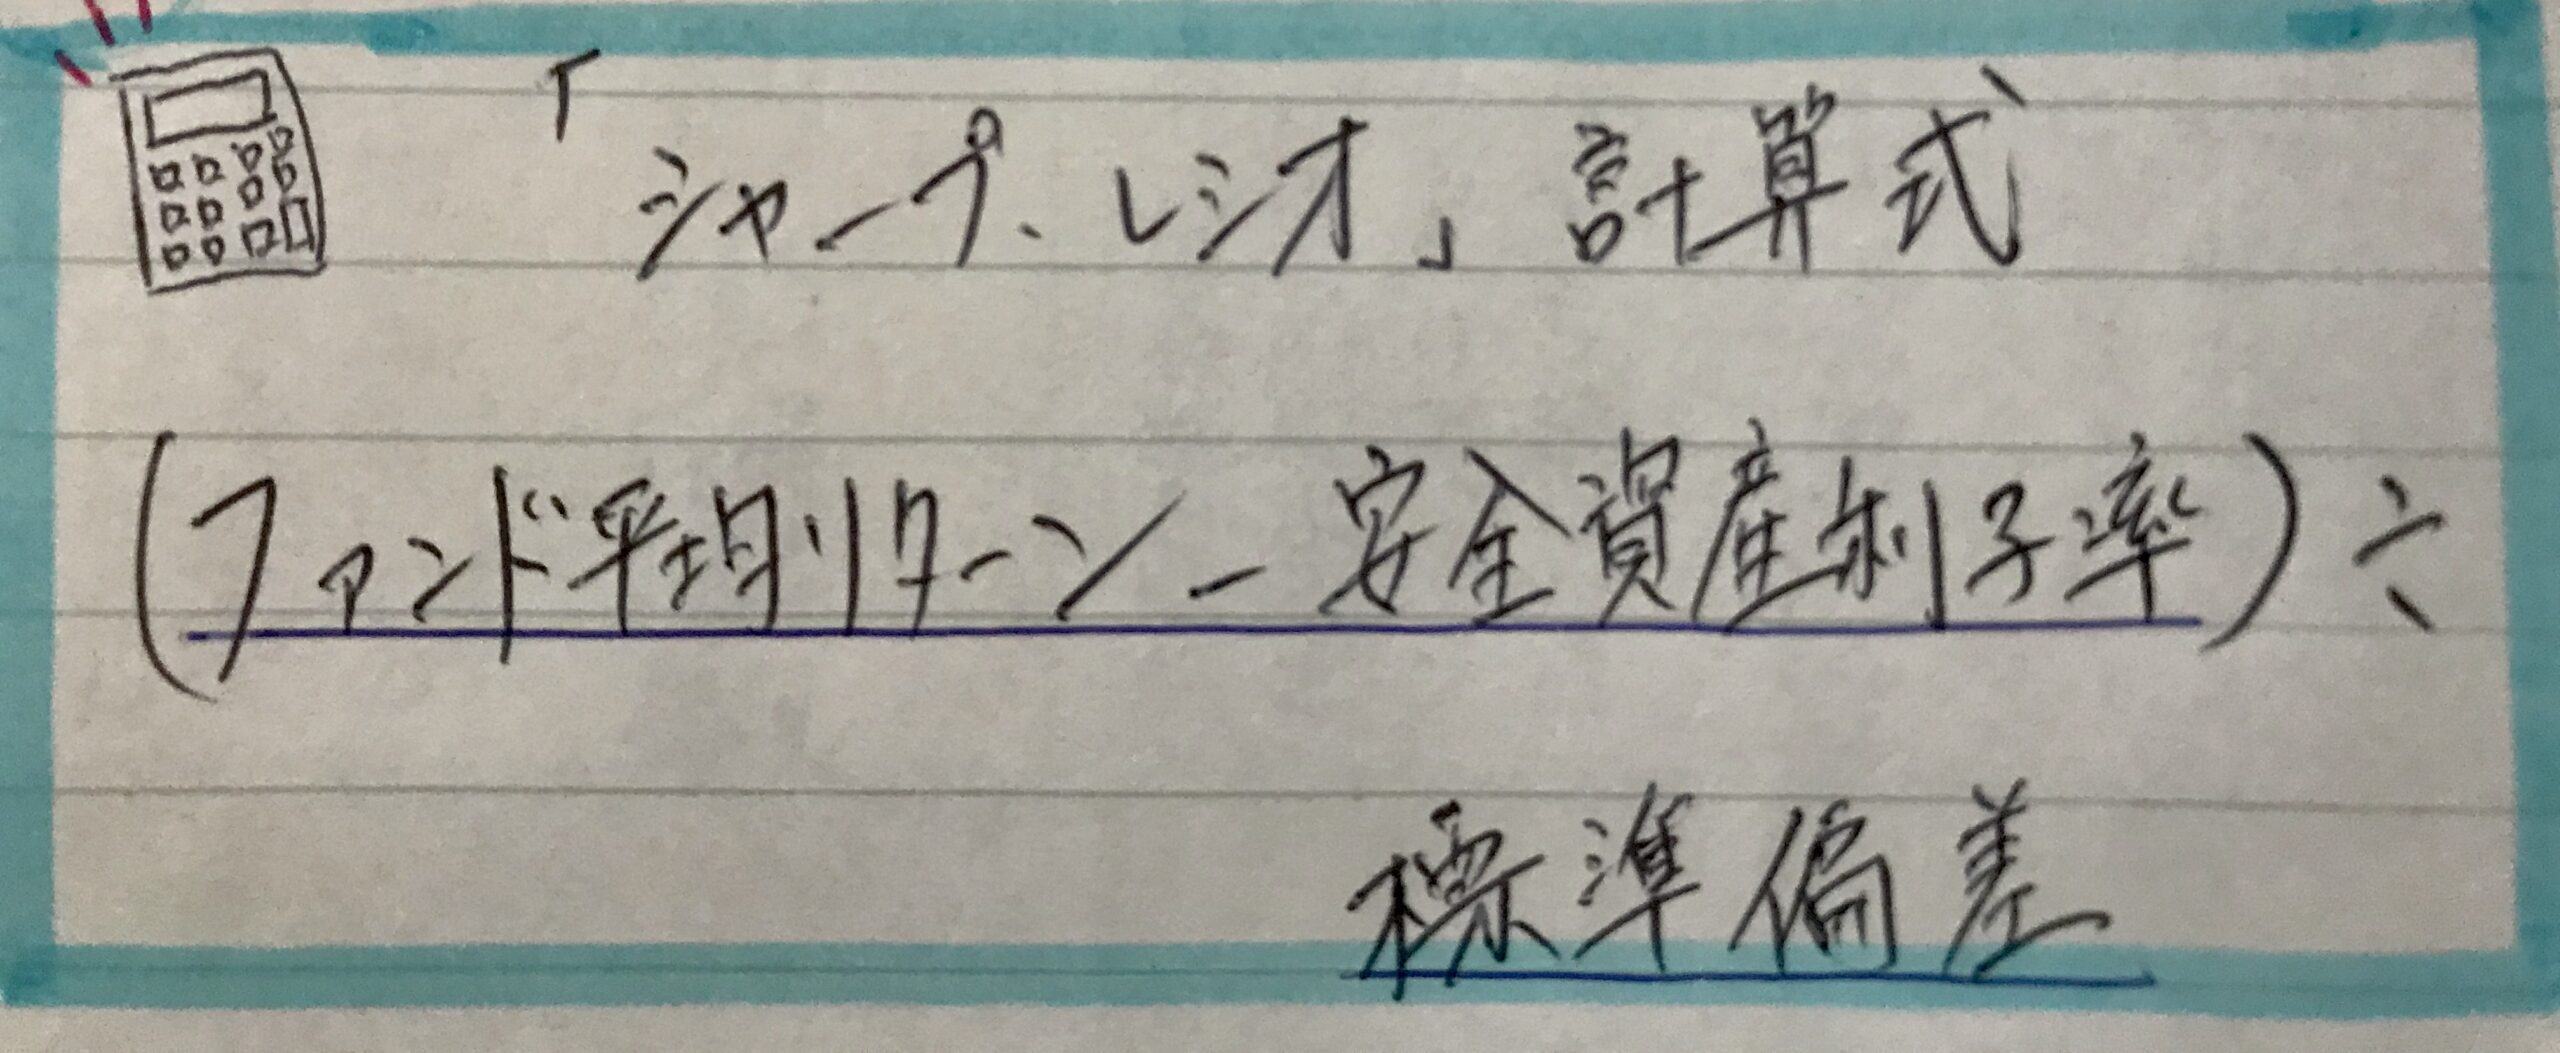 「シャープ、レシオ」計算式
(ファンド平均リターン－安全資産利子率)÷
標準偏差